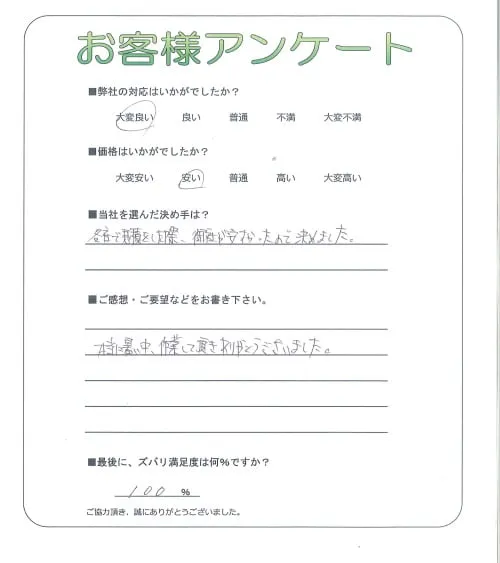 お客様アンケート
■弊社の対応はいかがでしたか？
大変良い 良い 普通 不満 大変不満
■価格はいかがでしたか？
大変安い 安い 普通 高い 大変高い
■当社を選んだ決め手は？
各社で見積をした際、御社が安かったので決めました。
■ご感想・ご要望などをお書き下さい。
本当に暑い中、作業して頂きありがとうございました。
■最後に、ズバリ満足度は何％ですか？
100 ％
ご協力頂き、誠にありがとうございました。